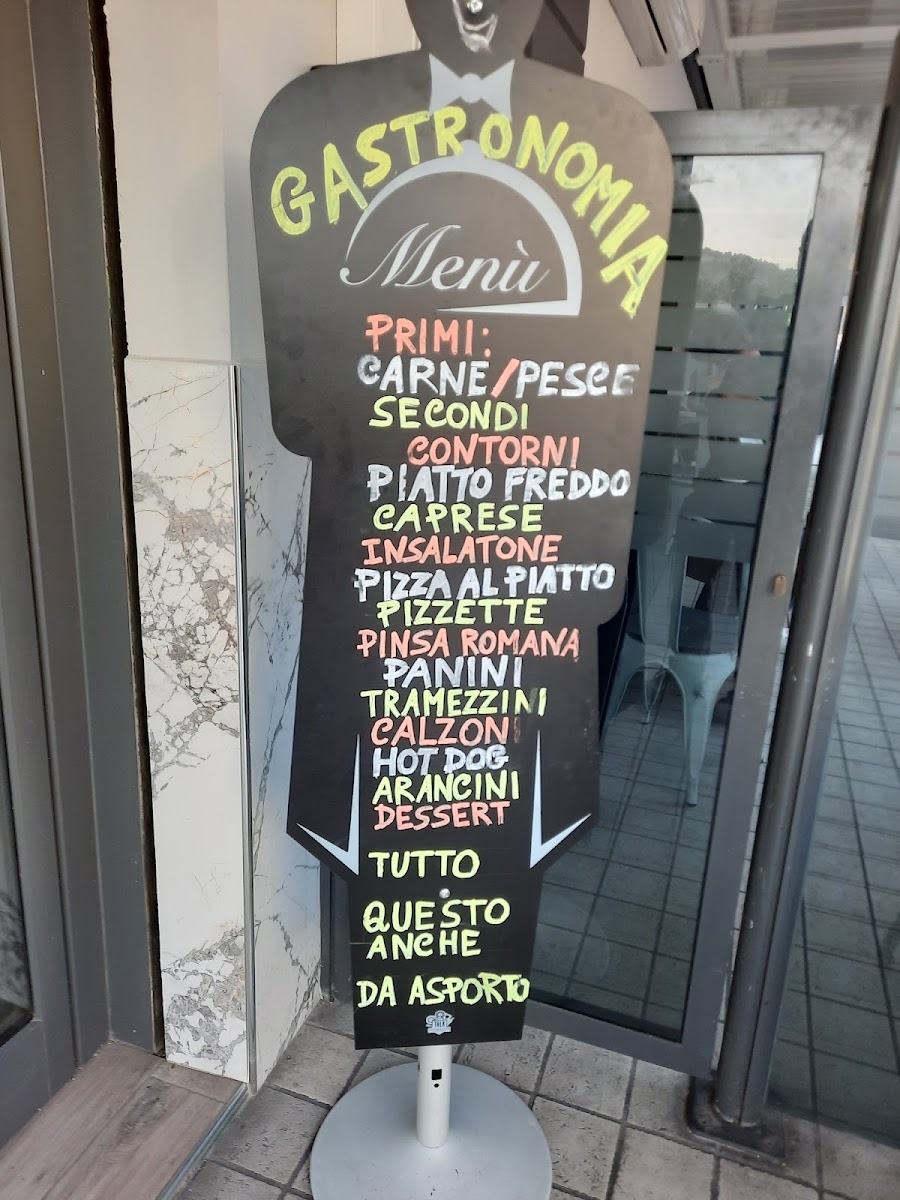 GASTRONOMIA
Menù
PRIMI:
CARNE/PESCE
SECONDI
CONTORNI
PIATTO FREDDO
CAPRESE
INSALATONE
PIZZA AL PIATTO
PIZZETTE
PINSA ROMANA
PANINI
TRAMEZZINI
CALZONI
HOT DOG
ARANCINI
DESSERT
TUTTO
QUESTO
ANCHE
DA ASPORTO